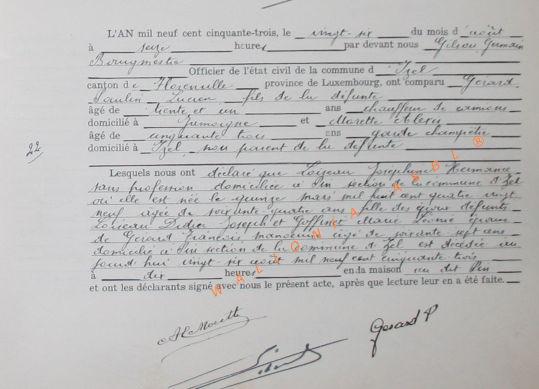 L'AN mil neuf cent cinquante-trois, le vingt-six du mois d'août
à seize heures par devant nous Gilson, Germain
Bourgmestre
Officier de l'état civil de la commune d'Izel
canton de Florenville province de Luxembourg, ont comparu Gérard
Paulin Lucien fils de la défunte
âgé de trente et un ans chauffeur de camions
domicilié à Jamoigne et Morette
âgé de cinquante trois ans garde champêtre
domicilié à Izel, non parent de la défunte
22
Lesquels nous ont déclaré que Loizeau Joséphine Hermance
sans profession domiciliée à Pin section de la commune d'Izel
où elle est née le quinze mars mil huit cent quatre vingt
neuf âgée de soixante quatre ans fille des défunts
Loizeau Didier Joseph et Goffinet Marie épouse
de Gérard François, manoeuvre âgé de soixante sept ans
domicilié à Pin section de la commune d'Izel est décédée au
jourd'hui vingt-six août mil neuf cent cinquante trois
à dix heures en la maison
et ont les déclarants signé avec nous le présent acte, après que lecture leur en a été faite.
Gérard P